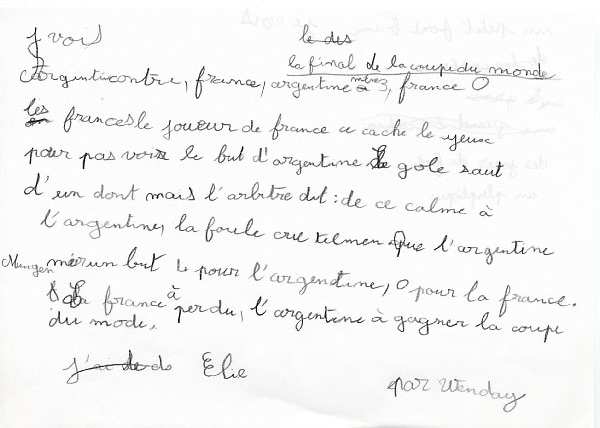 j vois le des
la final de la coupe du monde
argenticontre, france, argentine 3, france 0
les francesle joueur de france a cache le yeux
pour pas voir le but d'argentine Le gole saut
d'un dont mais l'arbitre dit : de ce calme à
l'argentine, la foule crie telmen Que l'argentine
mer un but 4 pour l'argendtine, 0 pour la france.
La france à perdu, l'argentine à gagner la coupe
du mode.
j'ai de do Elie
par Wenday